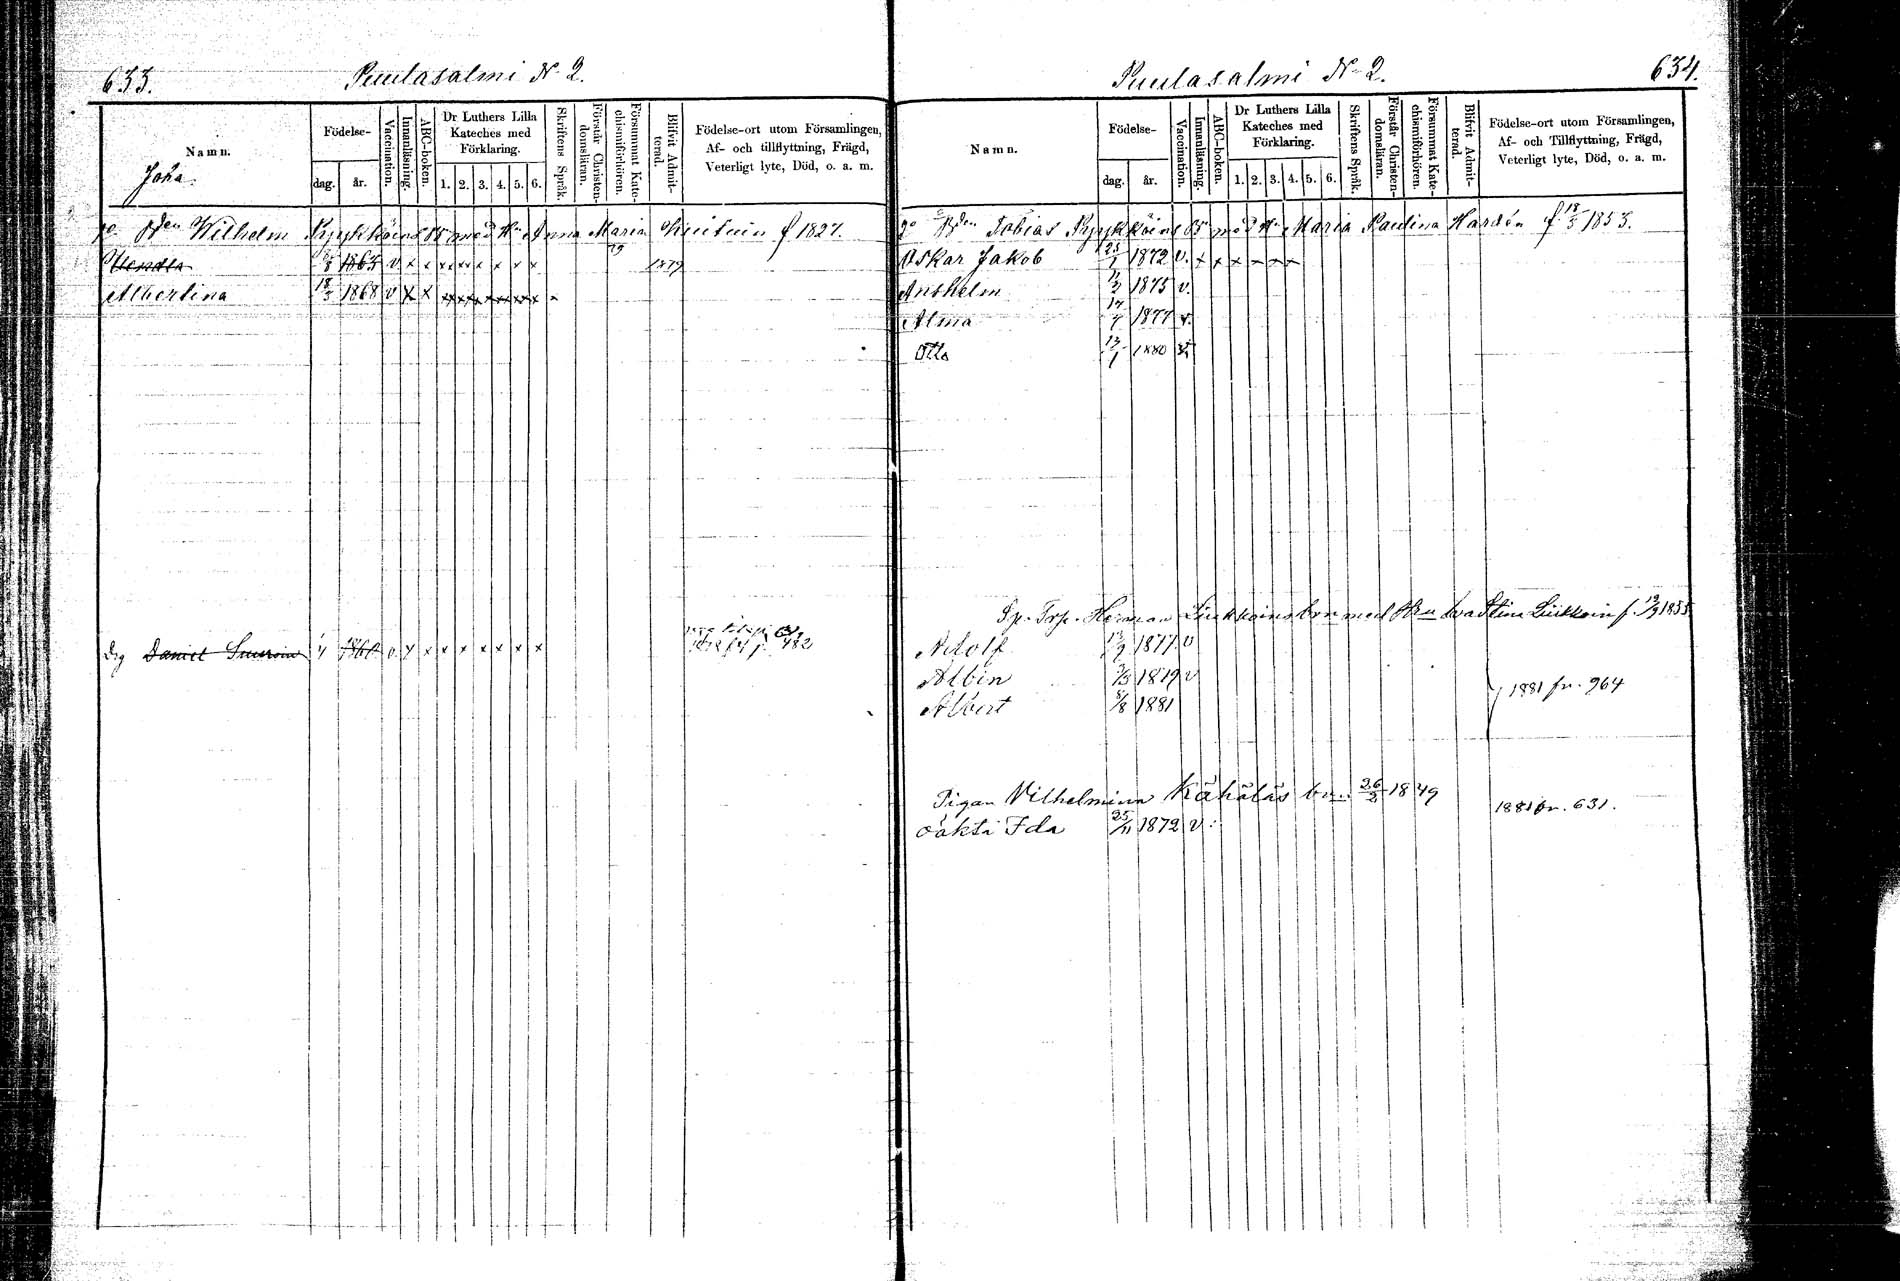 633.
Puulasalmi N 2.
Namn.
Födelse-
dag.
år.
Vaccination.
Innanläsning.
ABC-boken.
Dr Luthers Lilla
Kateches med
Förklaring.
1. 2. 3. 4. 5. 6.
Skriftens Språk.
Förstår Christen-
domsläran.
Försummat Kate-
chismiförhören.
Blifvit Admit-
terad.
Födelse-ort utom Församlingen,
Af- och tillflyttning, Frägd,
Veterligt lyte, Död, o. a. m.
Wilhelm Pyykköins Bn med Hu Anna Maria f 1827.
Wendla 1865 v x x x x x x x x 1879
Albertina 18/3 1868 v x x x x x x x x
Drg Daniel 1860 v x x x x x x x x 482
634.
Puulasalmi N 2.
Namn.
Födelse-
dag.
år.
Vaccination.
Innanläsning.
ABC-boken.
Dr Luthers Lilla
Kateches med
Förklaring.
1. 2. 3. 4. 5. 6.
Skriftens Språk.
Förstår Christen-
domsläran.
Försummat Kate-
chismiförhören.
Blifvit Admit-
terad.
Födelse-ort utom Församlingen,
Af- och Tillflyttning, Frägd,
Veterligt lyte, Död, o. a. m.
2o Bden Tobias Pyykköins Bn med Hu Maria Paulina f. 18/5 1853.
Oskar Jakob 25/1 1872 v. x x x x x x
Anshelm 1875 v.
Alma 1877 v.
Otto 13/1 1880
Sp. Trp. Herman Liukkoins brn med Hu Eva Stina Liukkoin f. 1855
Adolf 1877 v
Albin 3/3 1879 v
Albert 8/8 1881
1881 fr. 964
Pigan Vilhelmina Kähäläs bn. 26/2 1849
1881 fr. 631.
oäkta Ida 25/11 1872 v